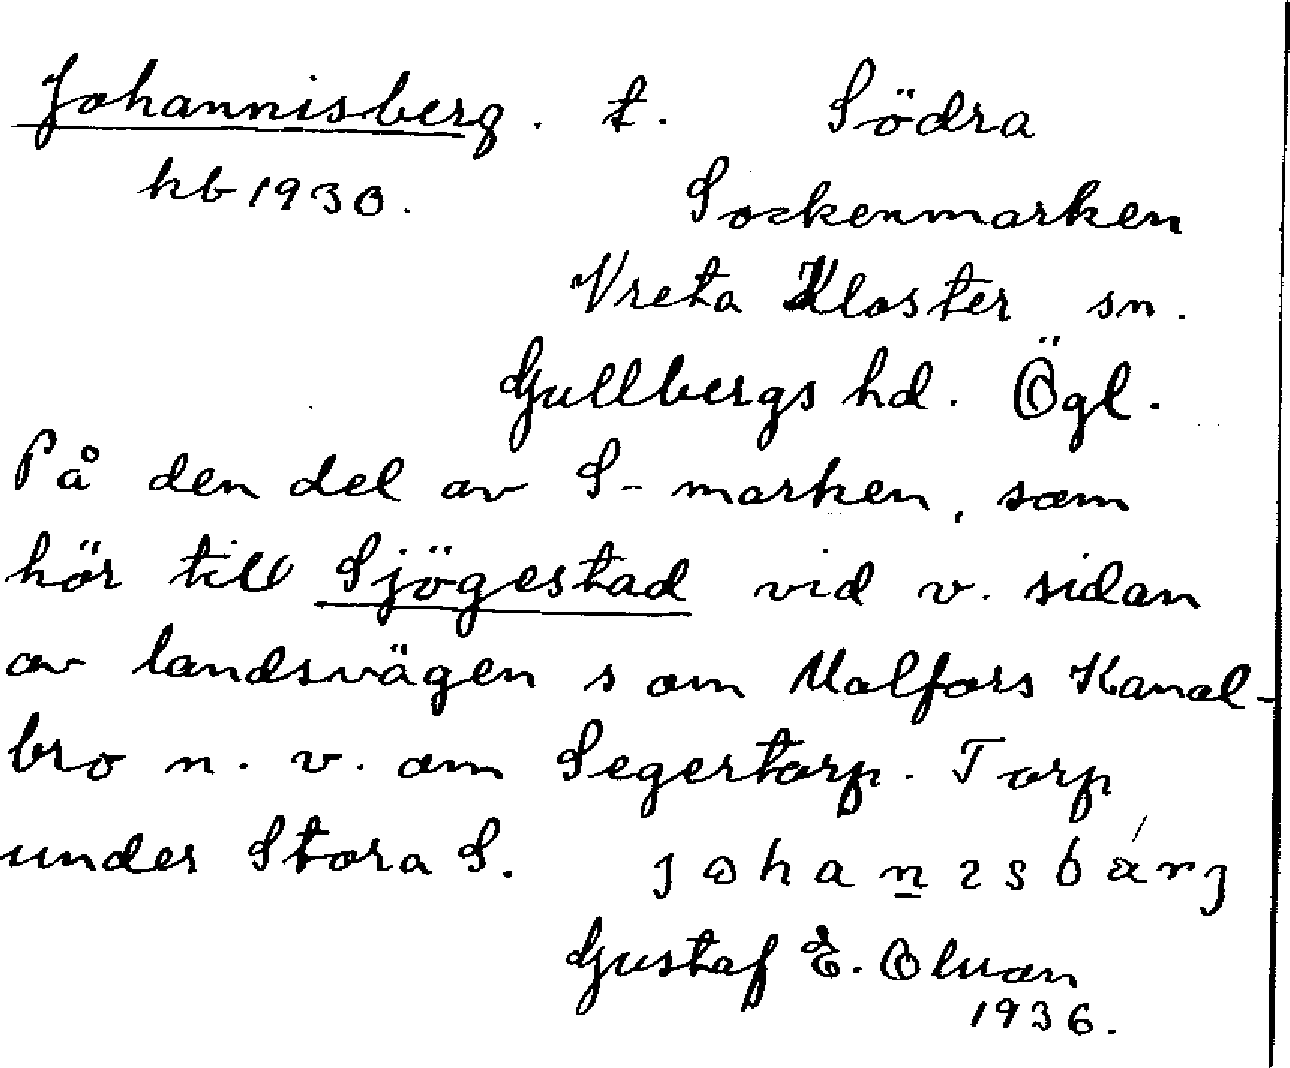 Johannisberg. t. Södra
kb 1930. Sockenmarken
Vreta Kloster sn.
Gullbergs hd. Ögl.
På den del av S-marken, som
hör till Sjögestad vid v. sidan
av landsvägen s om Malfors Kanal-
bro n. v. om Segertorp. Torp
under Stora S.
Gustaf E.
1936.